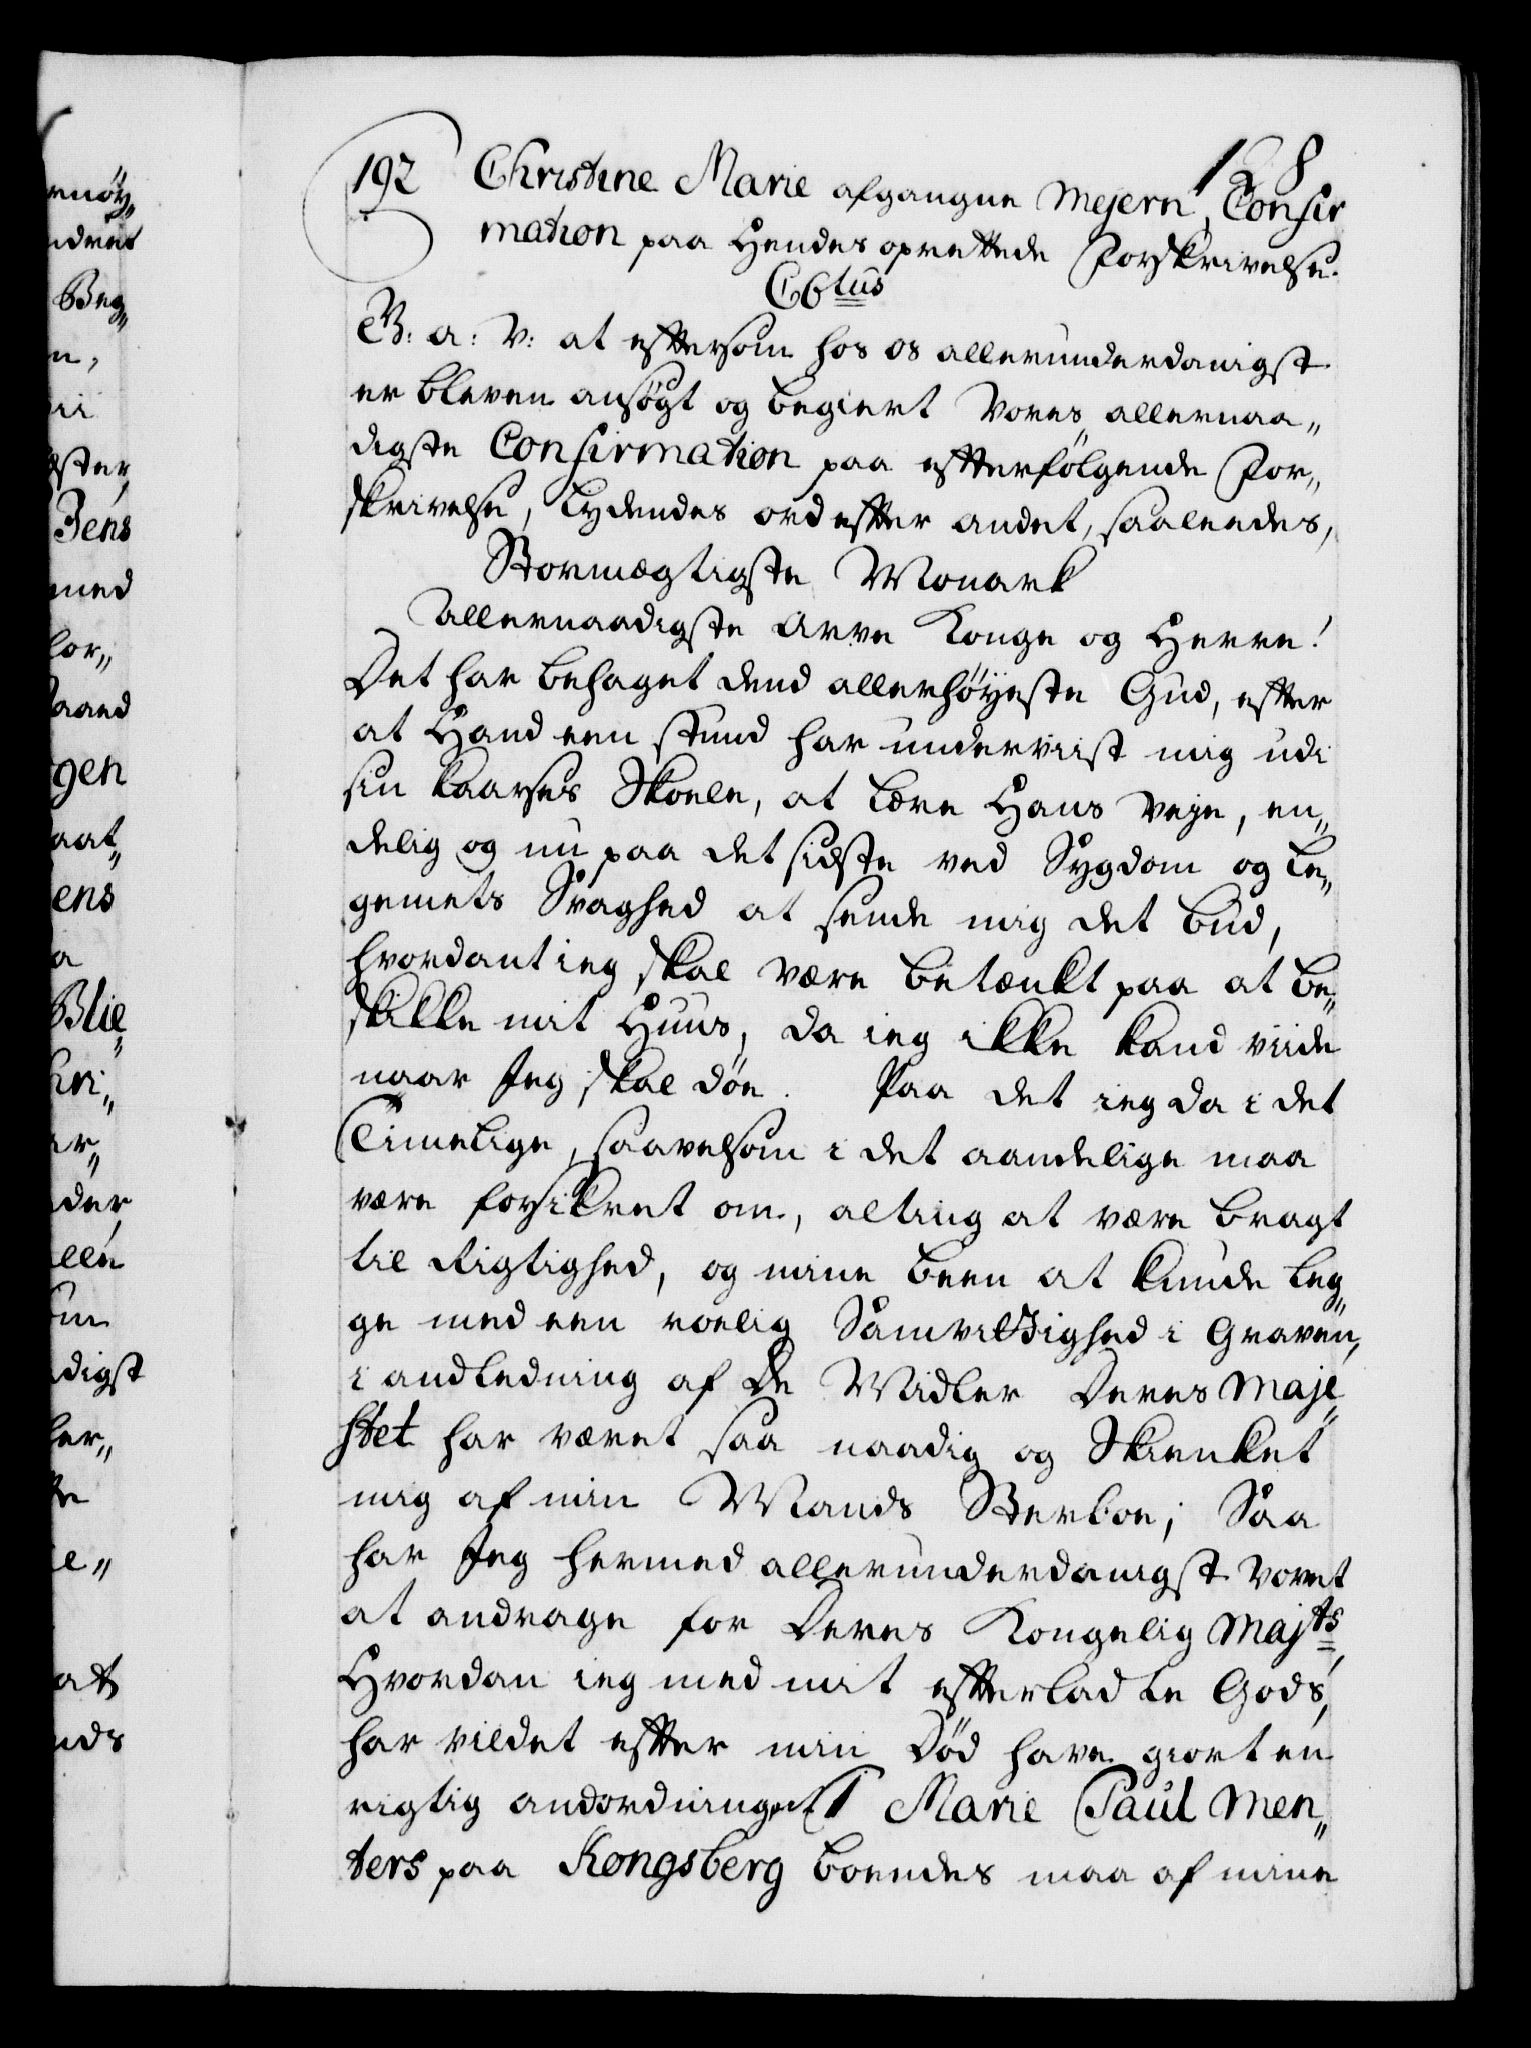 128
192 Christine Marie afgangne Mejern, Confir
mation paa Hendes oprettede Forskrivelse.
C6tus
G: a: V: at eftersom hos os allerunderdanigst
er bleven ansøgt og begiert Vores allernaa„
digste Confirmation paa efterfølgende For„
skrivelse, lydendes ord efter andet, saaleedes,
Stormægtigste Monark
Allernaadigste Arve Konge og Herre!
Det har behaget dend allerhøyeste Gud, efter
at Hand een stund har underviist mig udi
sin Kaarses Skoele, at lære Hans Veje, en„
delig og nu paa det sidste ved Sygdom og Le„
gemets Svaghed at sende mig det bud,
hvordant ieg skal være betænkt paa at be„
skikke mit Huus, da ieg ikke kand viide
naar Jeg skal døe. Paa det ieg da i det
Timelige, saavelsom i det aandelige maa
være forsikret om, alting at være bragt
til Rigtighed, og mine been at kunde leg„
ge med een roelig Samvittighed i Graven,
i andledning af de Midler Deres Maje„
stet har været saa naadig og Skienket
mig af min Mands Sterboe; Saa
har Jeg hermed allerunderdanigst voret
at andrage for Deres Kongelig Majts
Hvordan ieg med mit efterladte Gods,
har vildet efter min Død have giort en
rigtig andordning 1 Marie Paul Men„
ters paa Kongsberg boendes maa af mine
rnøy„
ndret
Beg„
n,
ii
ster,
Jens
med
for„
aand
gen
aat„
ens
a
Blie„
hri„
ar„
der
ellen
um
digst
ler„
e„
at
nds